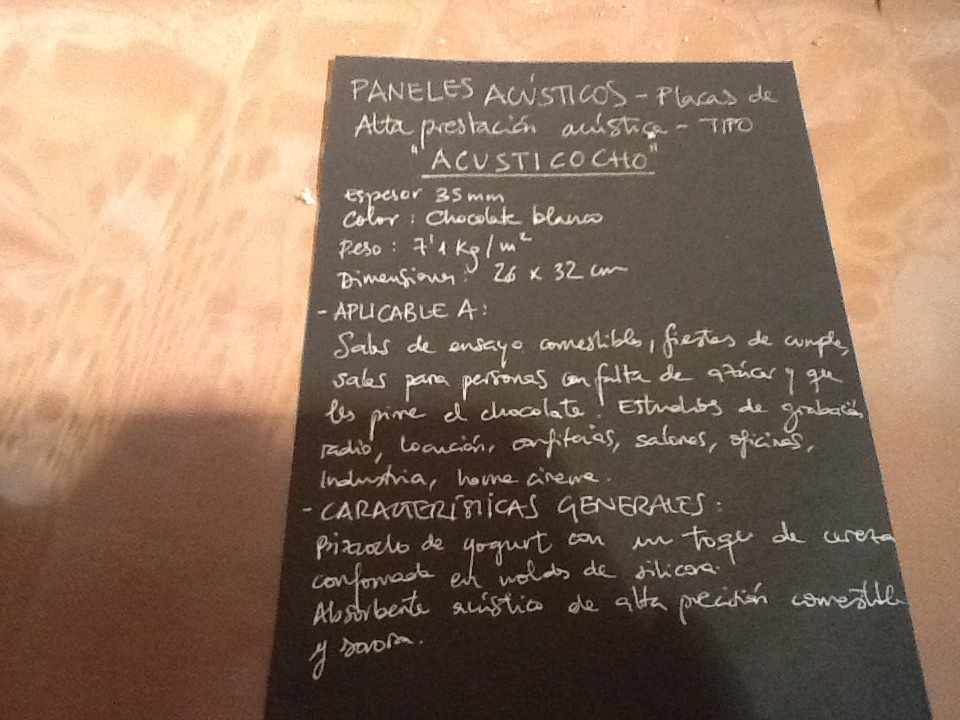 PANELES ACÚSTICOS - Placas de
Alta prestación acústica - TIPO
"ACUSTICOCHO"
Espesor 35 mm
Color : Chocolate blanco
Peso : 7'1 Kg/m²
Dimensiones : 26 x 32 cm
- APLICABLE A :
Salas de ensayo comestibles, fiestas de cumple,
salas para personas con falta de azúcar y que
les pirre el chocolate. Estudios de grabación,
radio, locución, confiterías, salones, oficinas,
Industria, home cinema.
- CARACTERÍSTICAS GENERALES :
de yogurt con un toque de cereza
conformada en molds de silicona.
Absorbente acústico de alta precisión comestible
y sonora.